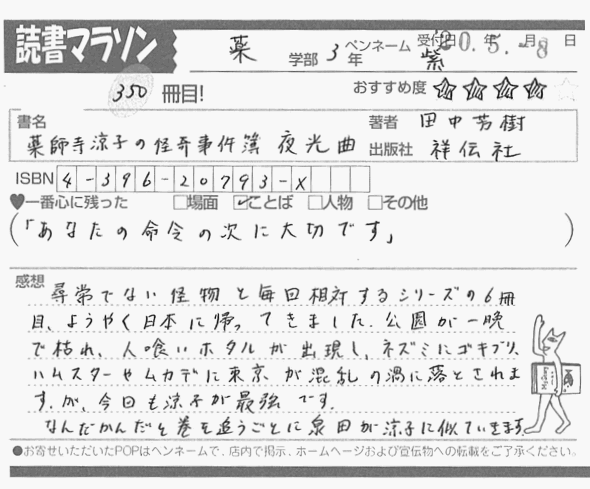 読書マラソン 薬 学部 3年 ペンネーム 紫 受付日 年 5. 月 -8 日
350 冊目! おすすめ度 ☆☆☆☆☆
書名 薬師寺涼子の怪奇事件簿 夜光曲
著者 田中芳樹
出版社 祥伝社
ISBN 4-396-20793-X
♥一番心に残った □場面 ☑ことば □人物 □その他
(「あなたの命令の次に大切です」)
感想 尋常でない怪物と毎回相対するシリーズの6冊
目、ようやく日本に帰ってきました。公園が一晩
で枯れ、人喰いホタルが出現し、ネズミにゴキブリ、
ハムスターやムカデに東京が混乱の渦に落とされま
す。が、今日も涼子が最強です。
なんだかんだと巻を追うごとに泉田が涼子に似ていきます。
●お寄せいただいたPOPはペンネームで、店内で掲示、ホームページおよび宣伝物への転載をご了承ください。